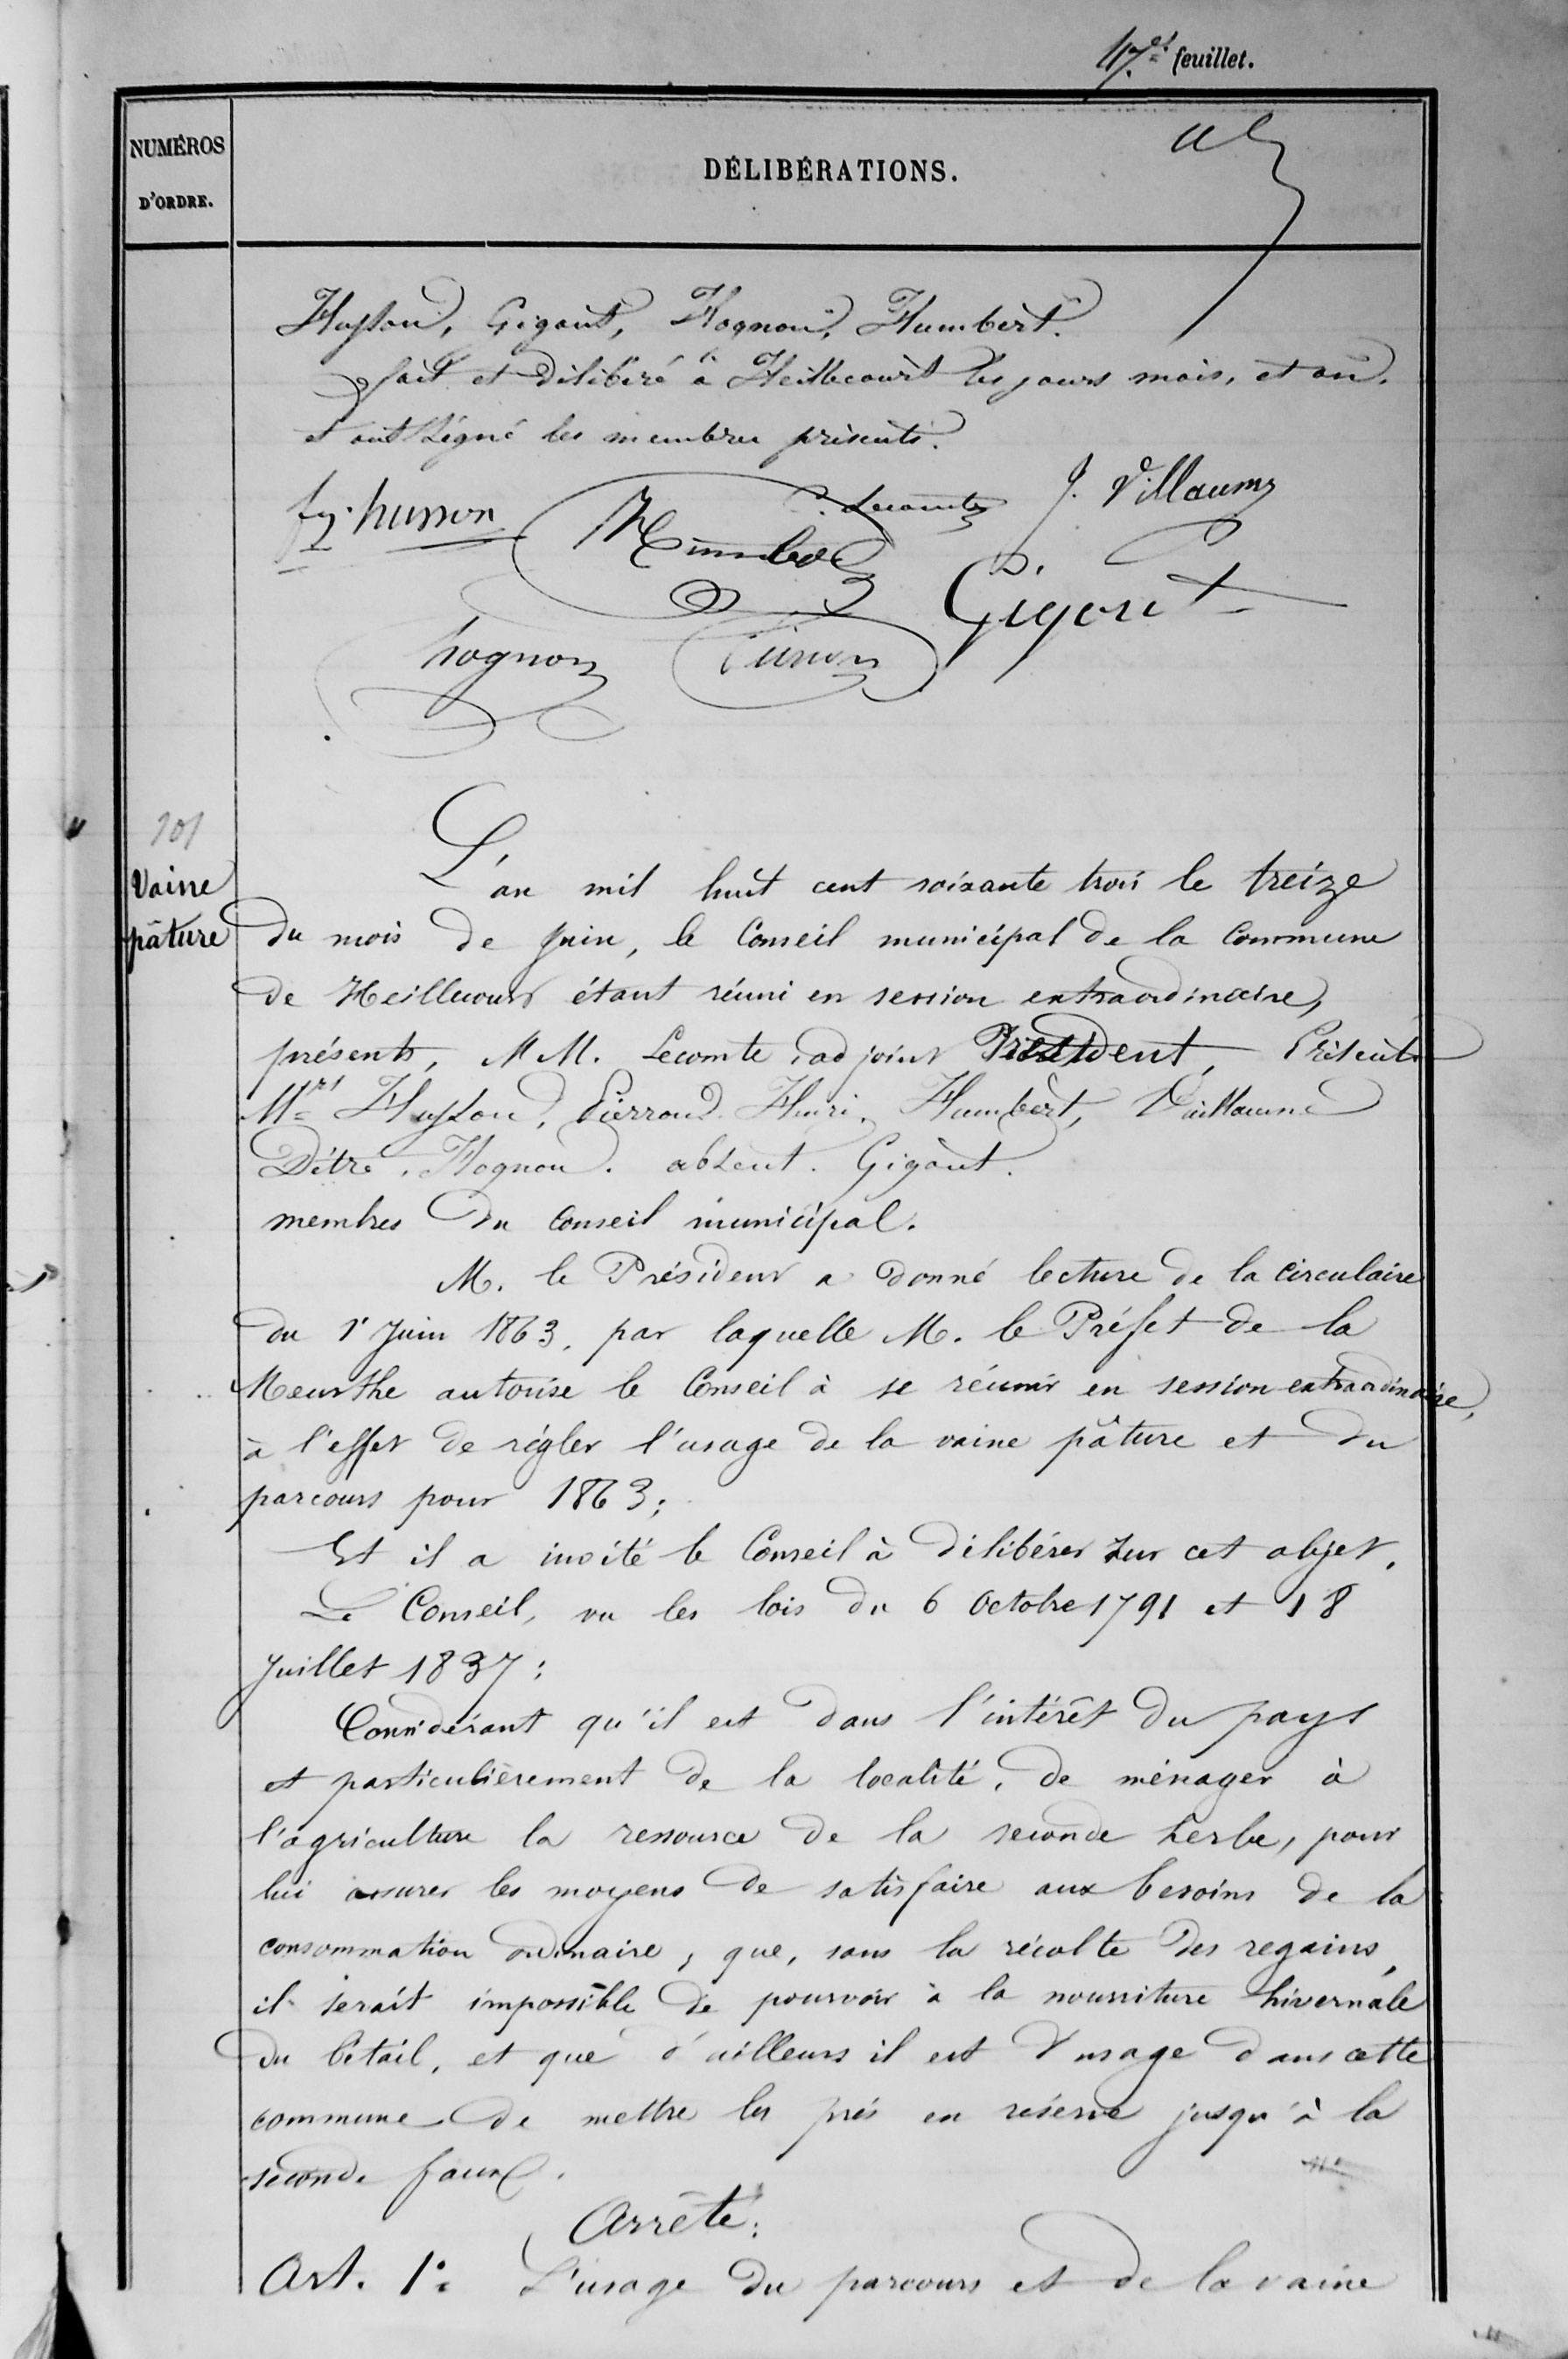 47.e feuillet.
NUMÉROS
D'ORDRE.
DÉLIBÉRATIONS.
Husson, Gigant, Hognon, Humbert.
fait et délibéré à Heillecourt les jours mois, et an.
et ont signé les membres présents.
husson
Lecomte
J. Villaume
Humbert
Gigant
hognon
101
Vaine
pâture
L'an mil huit cent soixante trois le treize
du mois de Juin, le Conseil municipal de la Commune
de Heillecourt étant réuni en session extraordinaire,
présents, MM. Lecomte, adjoint Président, Présents
Mrs Husson, Pierron Henri, Humbert, Vuillaume
Dêtre, Hognon. absent. Gigant.
membres du Conseil municipal.
M. le Président a donné lecture de la circulaire
du 1r Juin 1863, par laquelle M. le Préfet de la
Meurthe autorise le Conseil à se réunir en session extraordinaire,
à l'effet de régler l'usage de la vaine pâture et du
parcours pour 1863;
Et il a invité le Conseil à délibérer sur cet objet.
Le Conseil, vu les lois du 6 Octobre 1791 et 18
Juillet 1837:
Considérant qu'il est dans l'intérêt du pays
et particulièrement de la localité, de ménager à
l'agriculture la ressource de la seconde herbe, pour
lui assurer les moyens de satisfaire aux besoins de la
consommation ordinaire, que, sans la récolte des regains,
il serait impossible de pourvoir à la nourriture hivernale
du bétail, et que d'ailleurs il est d'usage dans cette
commune de mettre les prés en réserve jusqu'à la
seconde faux.
Arrête:
Art. 1er L'usage du parcours et de la vaine